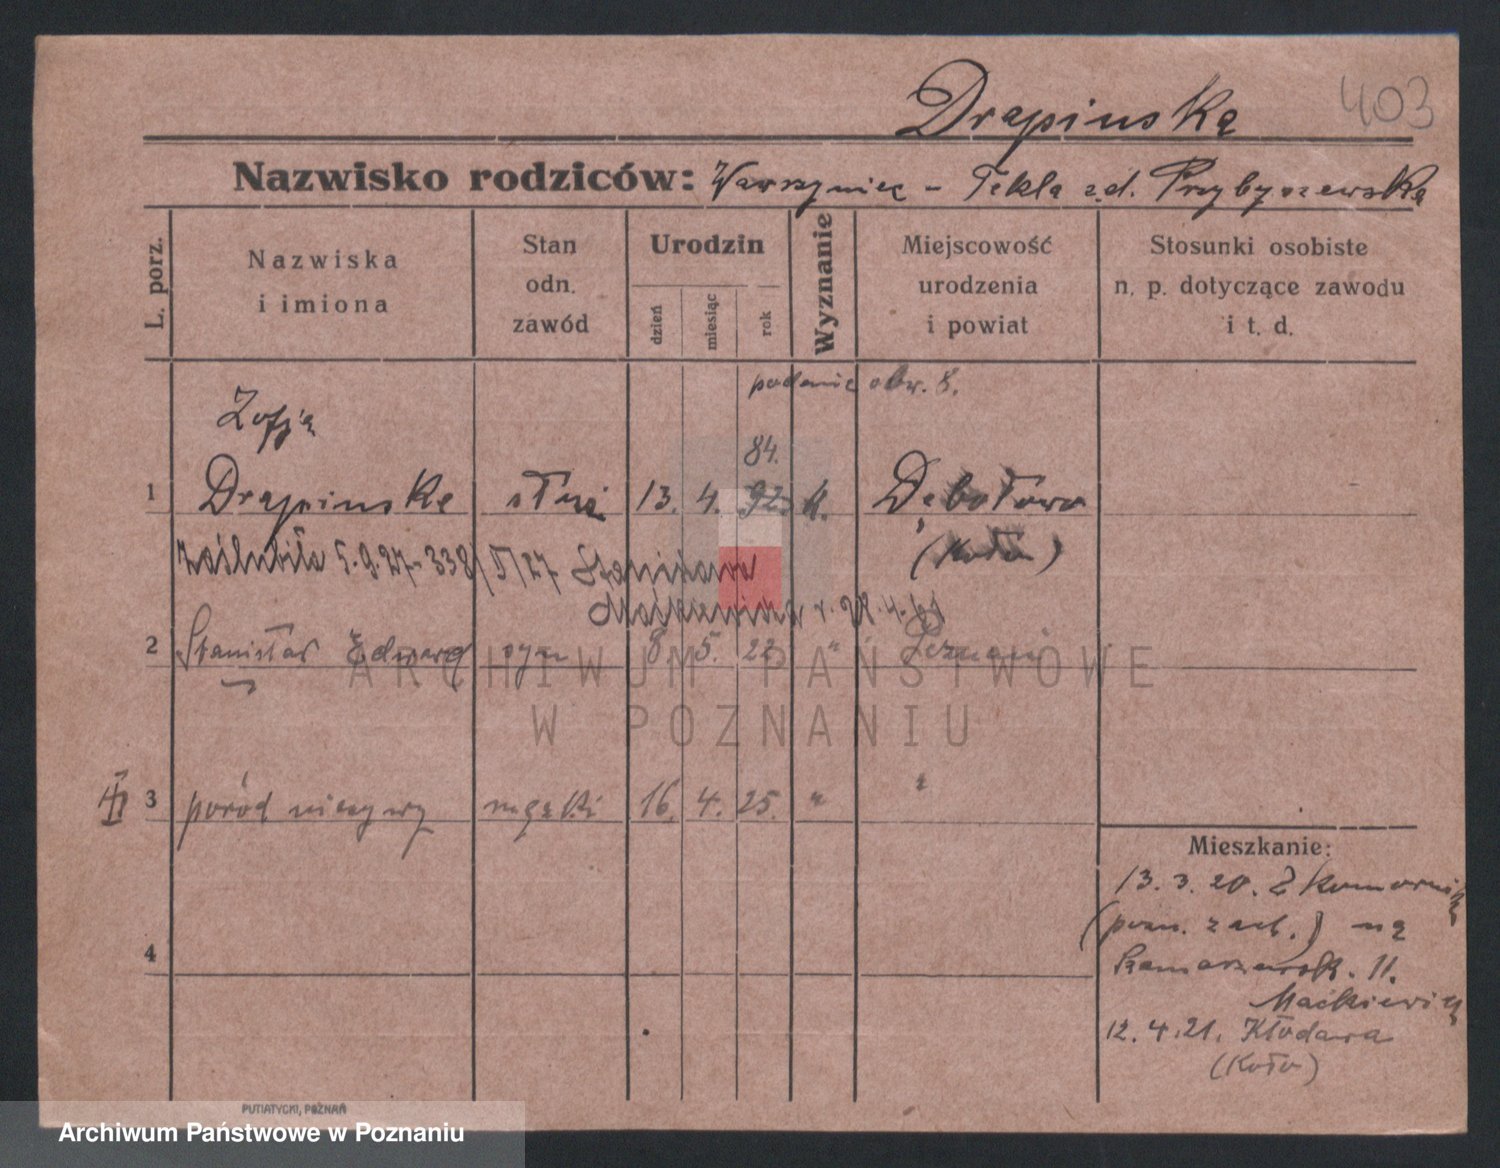 403
Drapinska
Nazwisko rodziców: Wawrzyniec - Tekla z d. Przybyszewska
L. porz.
Nazwiska i imiona
Stan odn. zawód
Urodzin
dzień
miesiąc
rok
Wyznanie
Miejscowość urodzenia i powiat
Stosunki osobiste n. p. dotyczące zawodu i t. d.
podanie obw. 8.
Zofja
84.
1 Drapinska służ 13. 4. 92. k. Dębołowo
(Koło)
zaślubiła 5.9.27 - 338/V/27 Stanisława
Maćkiewicza r. 22.4.
2 Stanisław Edward syn 8. 5. 22. " Poznań
ARCHIWUM PAŃSTWOWE
W POZNANIU
3 poród nieżywy męzki 16. 4. 25. " "
4
Mieszkanie:
13. 3. 20. Z Komornik
(pozn. zach.) na
Szamarzewsk. 11.
Maćkiewicz
12. 4. 21. Kłodawa
(Koło)
PUTIATYCKI, POZNAŃ
Archiwum Państwowe w Poznaniu